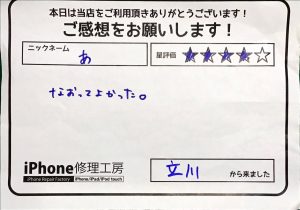 本日は当店をご利用頂きありがとうございます！
ご感想をお願いします！
ニックネーム
あ
星評価 ★★★★★
なおってよかった。
iPhone修理工房
iPhone Repair Factory iPhone/iPad/iPod touch
立川 から来ました